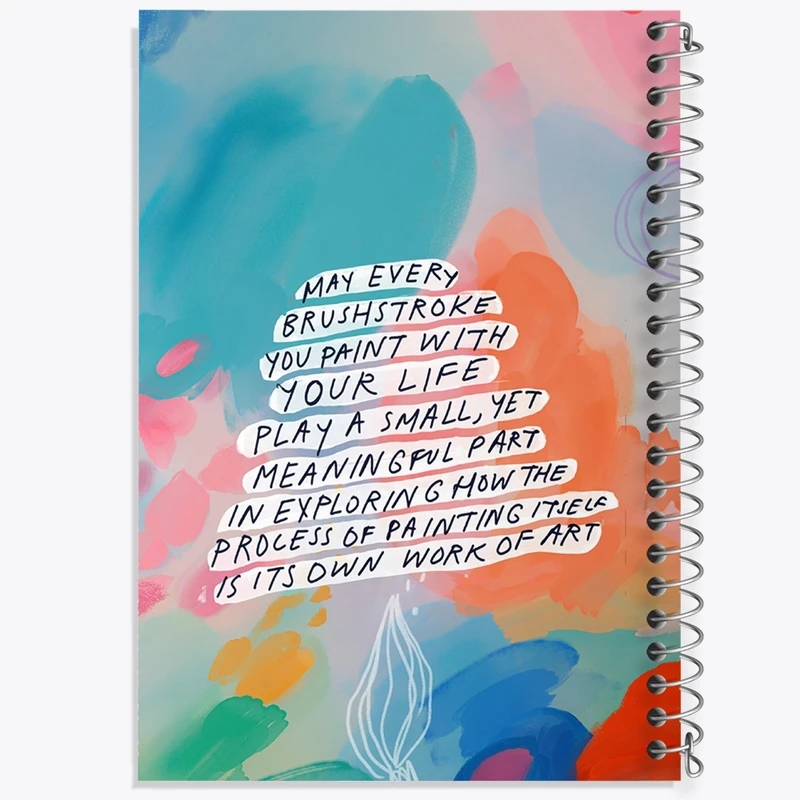 MAY EVERY
BRUSHSTROKE
YOU PAINT WITH
YOUR LIFE
PLAY A SMALL, YET
MEANINGFUL PART
IN EXPLORING HOW THE
PROCESS OF PAINTING ITSELF
IS ITS OWN WORK OF ART